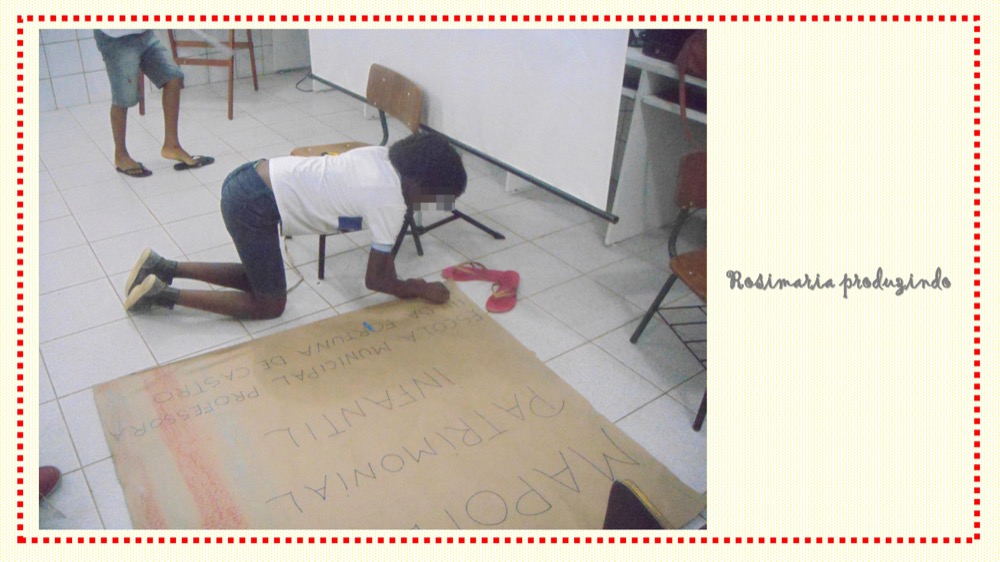 PATRIMONIAL
INFANTIL
ESCOLA MUNICIPAL PROFESSORA
DE FORTUNA DE CASTRO
Rosimaria produzindo